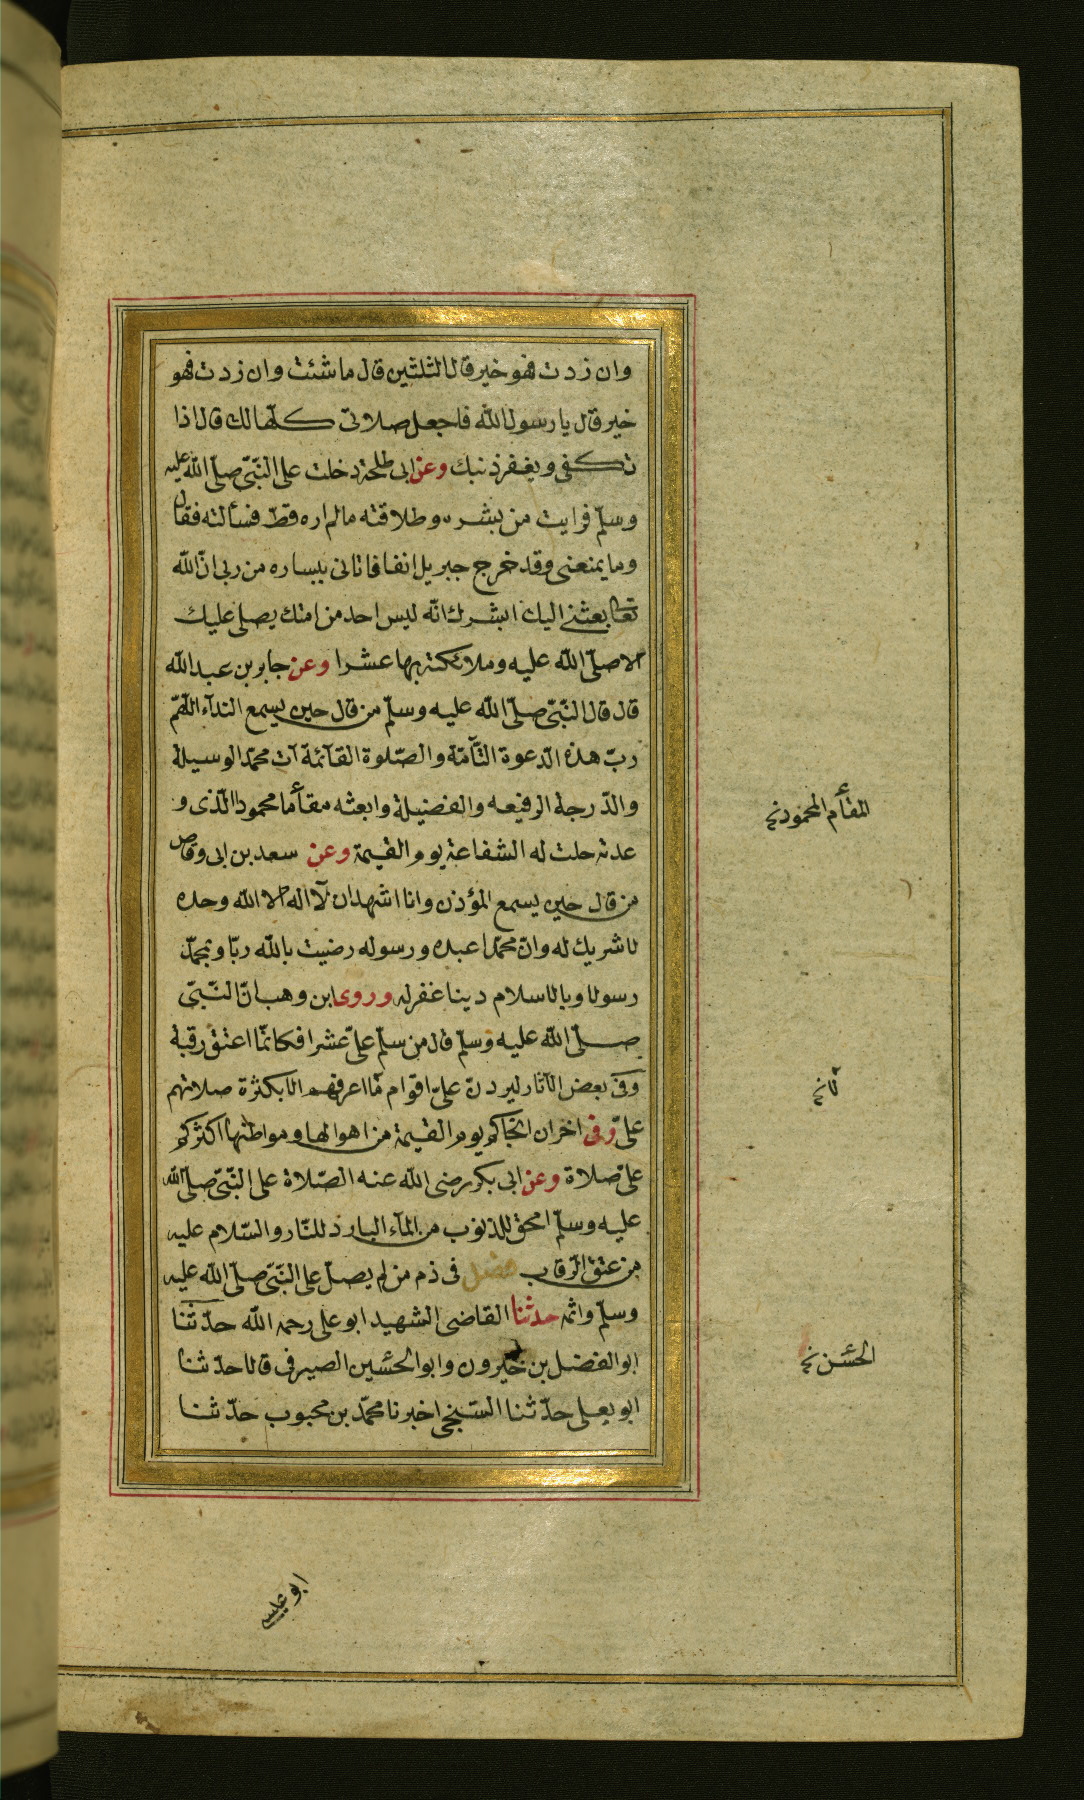 وان زدت فهو خير قال الثلثين قال ما شئت وان زدت فهو
خير قال يا رسول الله فاجعل صلاتى كلها لك قال اذا
تكفى ويغفر ذنبك وعن ابى طلحة دخلت على النّبىّ صلّى الله عليه
وسلّم فرايت من بشره وطلاقته مالم اره قطّ فسألته فقال
وما يمنعنى وقد خرج جبريل انفا فاتانى ببساره من ربى انّ الله
تعالى بعثنى اليك ابشرك انّه ليس احد من امتك يصلى عليك
الا صلّى الله عليه وملائكته بها عشرا وعن جابر بن عبد الله
قال قال النّبىّ صلّى الله عليه وسلّم من قال حين يسمع الندآء اللّهمّ
ربّ هذه الدعوة التّآمّة والصّلوة القآئمة آت محمّد الوسيلة
والدّرجة الرفيعه والفضيلة وابعثه مقأما محمودا الّذى و
عدته حلت له الشفاعة يوم القيمة وعن سعد بن ابى وقاص
من قال حين يسمع المؤذن وانا اشهد ان لآ اله الا الله وحده
لا شريك له وانّ محمّدا عبده ورسوله رضيت بالله ربّا وبمحمّد
رسولا وبالاسلام دينا غفر له وروى ابن وهب انّ النّبىّ
صلّى الله عليه وسلّم قال من سلّم علىّ عشرا فكانّما اعتق رقبة
وفى بعض الآثار ليردنّ علىّ اقوام مّا اعرفهم الا بكثرة صلاتهم
علىّ وفى اخر ان انجاكم يوم القيمة من اهوالها ومواطنها اكثركم
علىّ صلاة وعن ابى بكر رضى الله عنه الصّلاة على النّبىّ صلّى الله
عليه وسلّم امحق للذنوب من المآء البارد للنّار والسّلام عليه
من عتق الرّقاب فصل فى ذم من لم يصل على النّبىّ صلّى الله عليه
وسلّم واثمه حدثنا القاضى الشهيد ابو على رحمه الله حدّثنا
ابو الفضل بن خيرون وابو الحسين الصيرفى قالا حدّثنا
ابو يعلى حدّثنا السّبخى اخبرنا محمّد بن محبوب حدّثنا
المقأم المحمود نخ
الحسن نخ
ابو عيسى